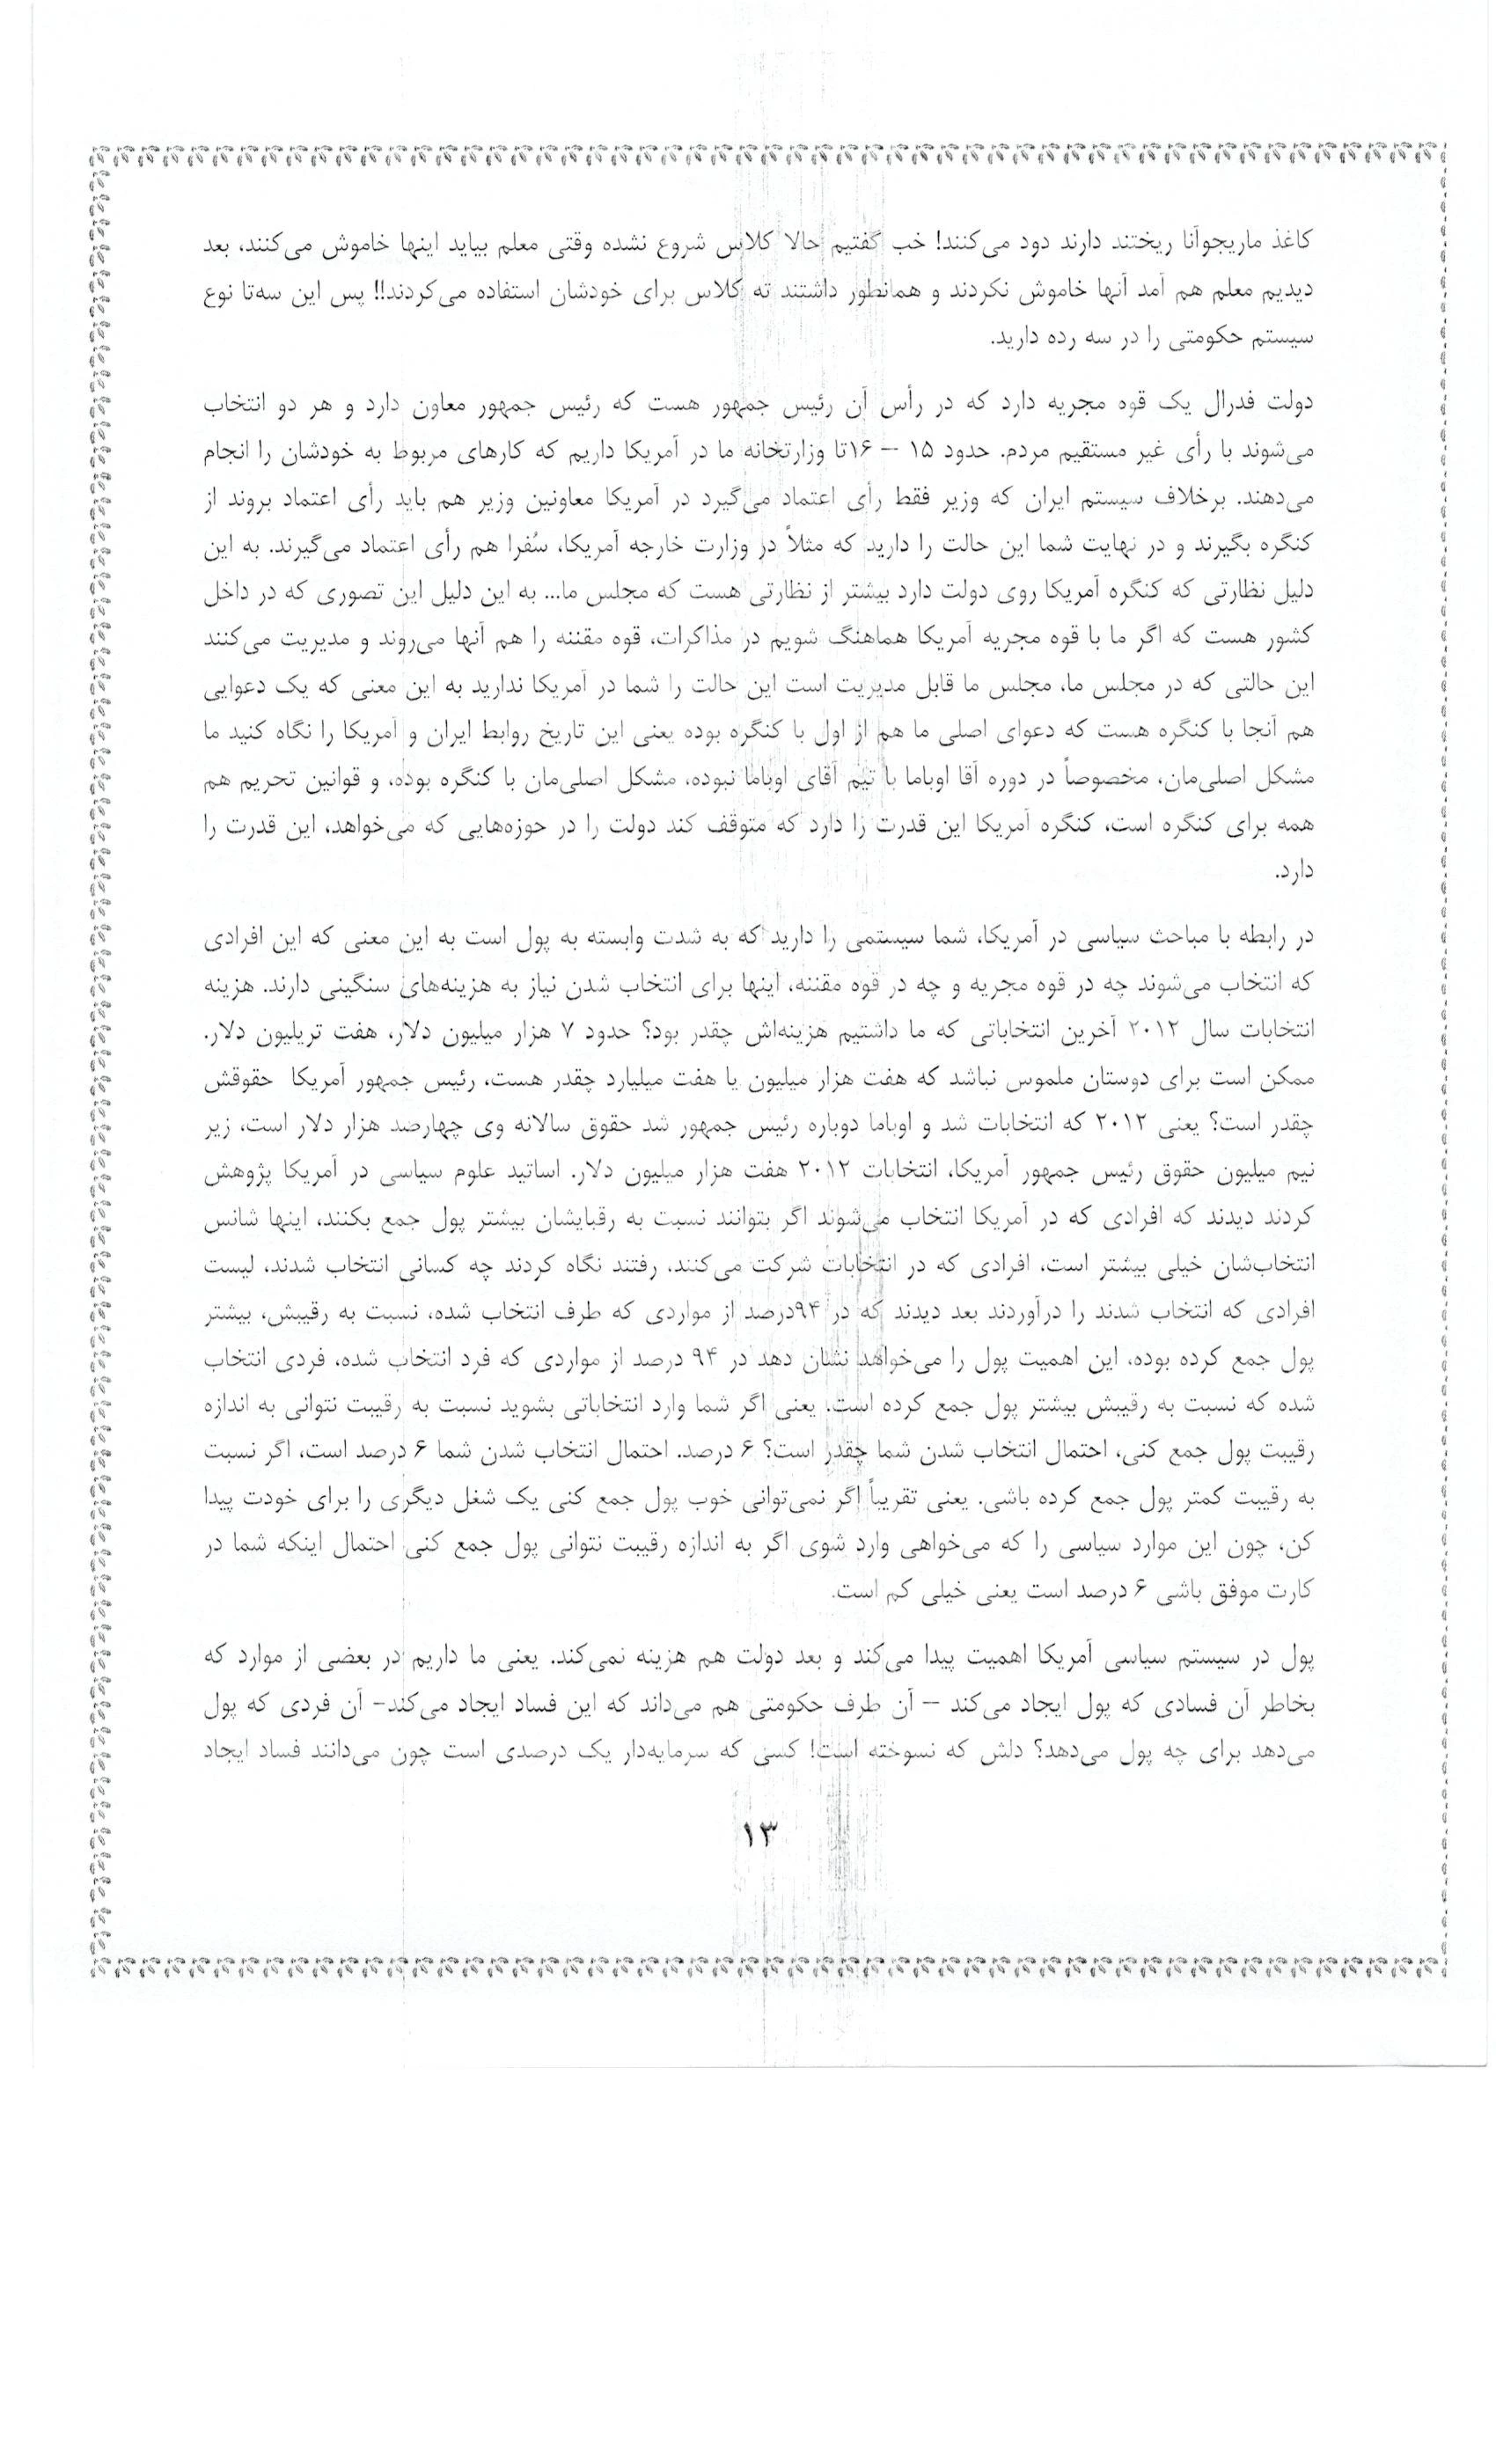 کاغذ ماریجوآنا ریختند دارند دود می‌کنند! خب گفتیم حالا کلاس شروع نشده وقتی معلم بیاید اینها خاموش می‌کنند، بعد
دیدیم معلم هم آمد آنها خاموش نکردند و همانطور داشتند ته کلاس برای خودشان استفاده می‌کردند!! پس این سه‌تا نوع
سیستم حکومتی را در سه رده دارید.
دولت فدرال یک قوه مجریه دارد که در رأس آن رئیس جمهور هست که رئیس جمهور معاون دارد و هر دو انتخاب
می‌شوند با رأی غیر مستقیم مردم. حدود ۱۵ – ۱۶تا وزارتخانه ما در آمریکا داریم که کارهای مربوط به خودشان را انجام
می‌دهند. برخلاف سیستم ایران که وزیر فقط رأی اعتماد می‌گیرد در آمریکا معاونین وزیر هم باید رأی اعتماد بروند از
کنگره بگیرند و در نهایت شما این حالت را دارید که مثلاً در وزارت خارجه آمریکا، سُفرا هم رأی اعتماد می‌گیرند. به این
دلیل نظارتی که کنگره آمریکا روی دولت دارد بیشتر از نظارتی هست که مجلس ما... به این دلیل این تصوری که در داخل
کشور هست که اگر ما با قوه مجریه آمریکا هماهنگ شویم در مذاکرات، قوه مقننه را هم آنها می‌روند و مدیریت می‌کنند
این حالتی که در مجلس ما، مجلس ما قابل مدیریت است این حالت را شما در آمریکا ندارید به این معنی که یک دعوایی
هم آنجا با کنگره هست که دعوای اصلی ما هم از اول با کنگره بوده یعنی این تاریخ روابط ایران و آمریکا را نگاه کنید ما
مشکل اصلی‌مان، مخصوصاً در دوره آقا اوباما با تیم آقای اوباما نبوده، مشکل اصلی‌مان با کنگره بوده، و قوانین تحریم هم
همه برای کنگره است، کنگره آمریکا این قدرت را دارد که متوقف کند دولت را در حوزه‌هایی که می‌خواهد، این قدرت را
دارد.
در رابطه با مباحث سیاسی در آمریکا، شما سیستمی را دارید که به شدت وابسته به پول است به این معنی که این افرادی
که انتخاب می‌شوند چه در قوه مجریه و چه در قوه مقننه، اینها برای انتخاب شدن نیاز به هزینه‌های سنگینی دارند. هزینه
انتخابات سال ۲۰۱۲ آخرین انتخاباتی که ما داشتیم هزینه‌اش چقدر بود؟ حدود ۷ هزار میلیون دلار، هفت تریلیون دلار.
ممکن است برای دوستان ملموس نباشد که هفت هزار میلیون یا هفت میلیارد چقدر هست، رئیس جمهور آمریکا حقوقش
چقدر است؟ یعنی ۲۰۱۲ که انتخابات شد و اوباما دوباره رئیس جمهور شد حقوق سالانه وی چهارصد هزار دلار است، زیر
نیم میلیون حقوق رئیس جمهور آمریکا، انتخابات ۲۰۱۲ هفت هزار میلیون دلار. اساتید علوم سیاسی در آمریکا پژوهش
کردند دیدند که افرادی که در آمریکا انتخاب می‌شوند اگر بتوانند نسبت به رقبایشان بیشتر پول جمع بکنند، اینها شانس
انتخاب‌شان خیلی بیشتر است، افرادی که در انتخابات شرکت می‌کنند، رفتند نگاه کردند چه کسانی انتخاب شدند، لیست
افرادی که انتخاب شدند را درآوردند بعد دیدند که در ۹۴درصد از مواردی که طرف انتخاب شده، نسبت به رقیبش، بیشتر
پول جمع کرده بوده، این اهمیت پول را می‌خواهد نشان دهد در ۹۴ درصد از مواردی که فرد انتخاب شده، فردی انتخاب
شده که نسبت به رقیبش بیشتر پول جمع کرده است، یعنی اگر شما وارد انتخاباتی بشوید نسبت به رقیبت نتوانی به اندازه
رقیبت پول جمع کنی، احتمال انتخاب شدن شما چقدر است؟ ۶ درصد. احتمال انتخاب شدن شما ۶ درصد است، اگر نسبت
به رقیبت کمتر پول جمع کرده باشی. یعنی تقریباً اگر نمی‌توانی خوب پول جمع کنی یک شغل دیگری را برای خودت پیدا
کن، چون این موارد سیاسی را که می‌خواهی وارد شوی اگر به اندازه رقیبت نتوانی پول جمع کنی احتمال اینکه شما در
کارت موفق باشی ۶ درصد است یعنی خیلی کم است.
پول در سیستم سیاسی آمریکا اهمیت پیدا می‌کند و بعد دولت هم هزینه نمی‌کند. یعنی ما داریم در بعضی از موارد که
بخاطر آن فسادی که پول ایجاد می‌کند – آن طرف حکومتی هم می‌داند که این فساد ایجاد می‌کند- آن فردی که پول
می‌دهد برای چه پول می‌دهد؟ دلش که نسوخته است! کسی که سرمایه‌دار یک درصدی است چون می‌دانند فساد ایجاد
۱۳